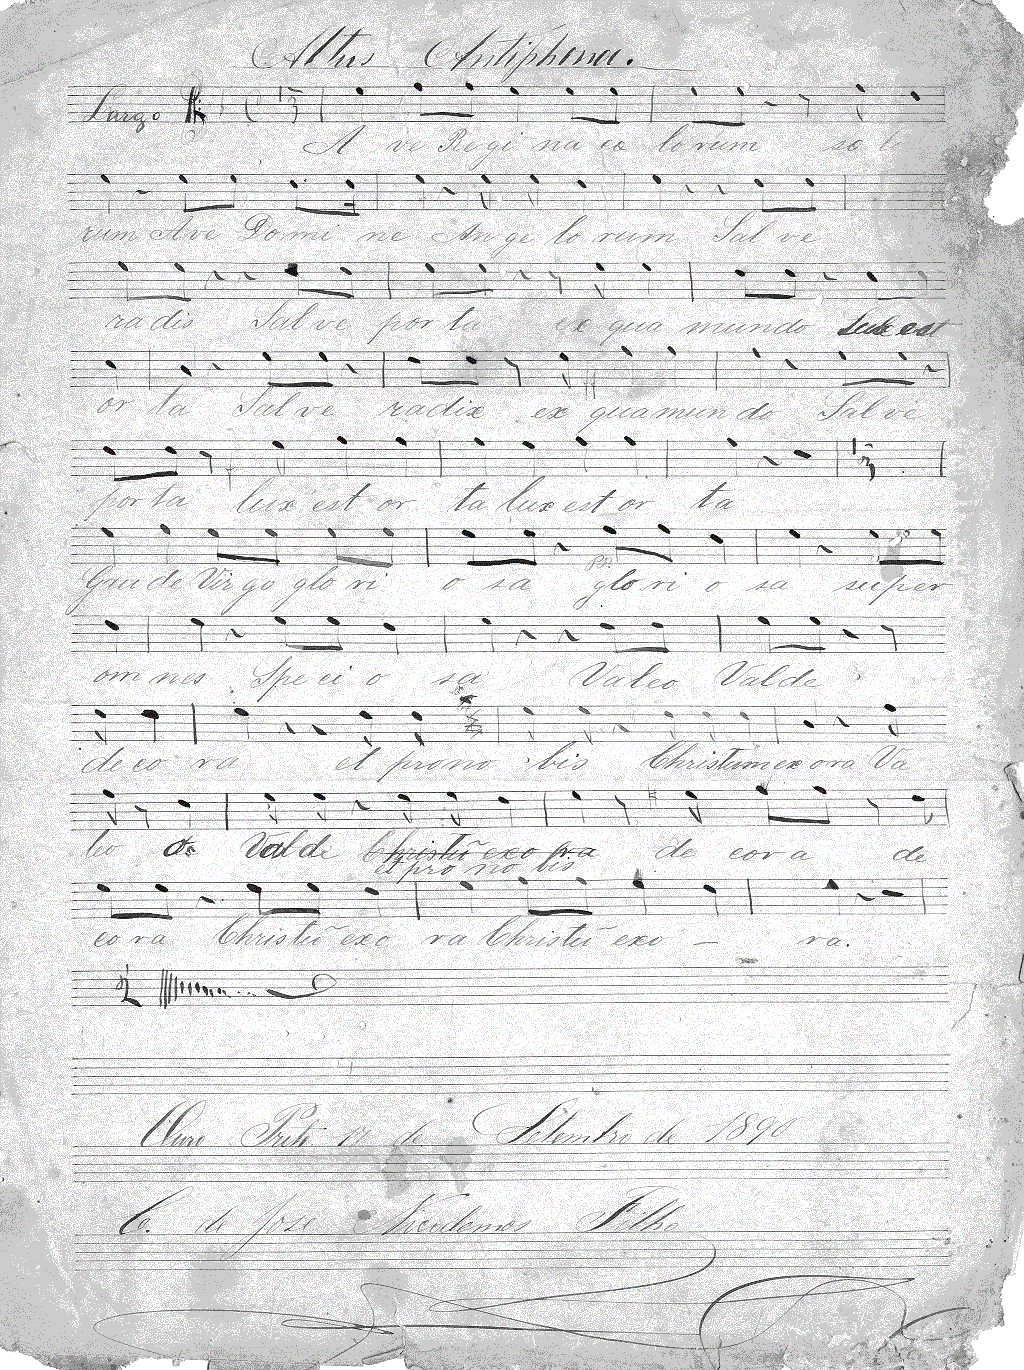 Altus Antiphona.
Largo
A ve Re gi na cœ lo rum
rum Ave Do mi ne An ge lo rum Sal ve
radis Sal ve por ta ex qua mundo Lux est
or ta Sal ve radix ex qua mun do Sal ve
por ta lux est or ta lux est or ta
Gau de Vir go glo ri o sa glo ri o sa super
om nes Spe ci o sa Valeo Valde
de co ra et pro no bis Christum ex ora Va
leo o Valde Christũ exo ra de cora de
et pro no bis
co ra Christũ exo ra Christũ exo – ra.
Ouro Preto 17 de Setembro de 1890
C. de José Nicodemos Filho